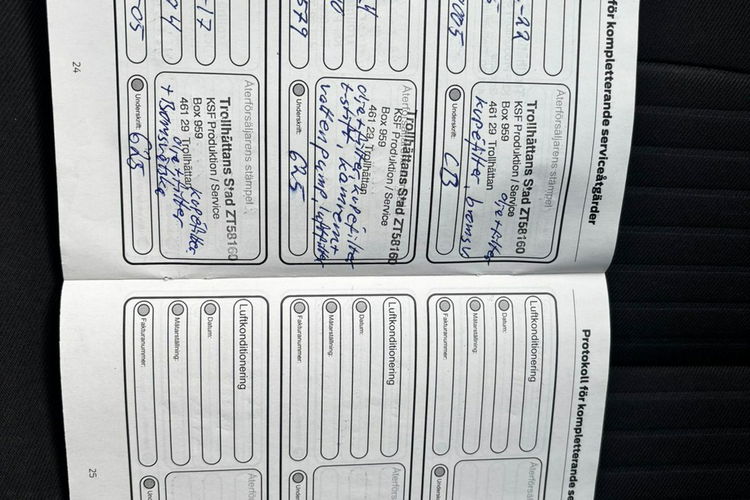 för kompletterande serviceåtgärder
-22
5
0005
Återförsäljarens stämpel
Trollhättans Stad ZT58160
KSF Produktion / Service
Box 959
461 29 Trollhättan
oljefilter
kupefilter, bromsv
Underskrift:
CB
4
0
579
Återförsäljarens stämpel
Trollhättans Stad ZT58160
KSF Produktion / Service
Box 959
461 29 Trollhättan
oljefilter, kupefilter
tstift, kamremt
vattenpump, luftfilter
Underskrift:
625
-17
04
05
Återförsäljarens stämpel
Trollhättans Stad ZT58160
KSF Produktion / Service
Box 959
461 29 Trollhättan
kupefilter
oljefilter
+ Bromsvätska
Underskrift:
625
24
Protokoll för kompletterande se
Luftkonditionering
Datum:
Mätarställning:
Fakturanummer:
Återförs
Luftkonditionering
Datum:
Mätarställning:
Fakturanummer:
Återförs
Luftkonditionering
Datum:
Mätarställning:
Fakturanummer:
Återför
25